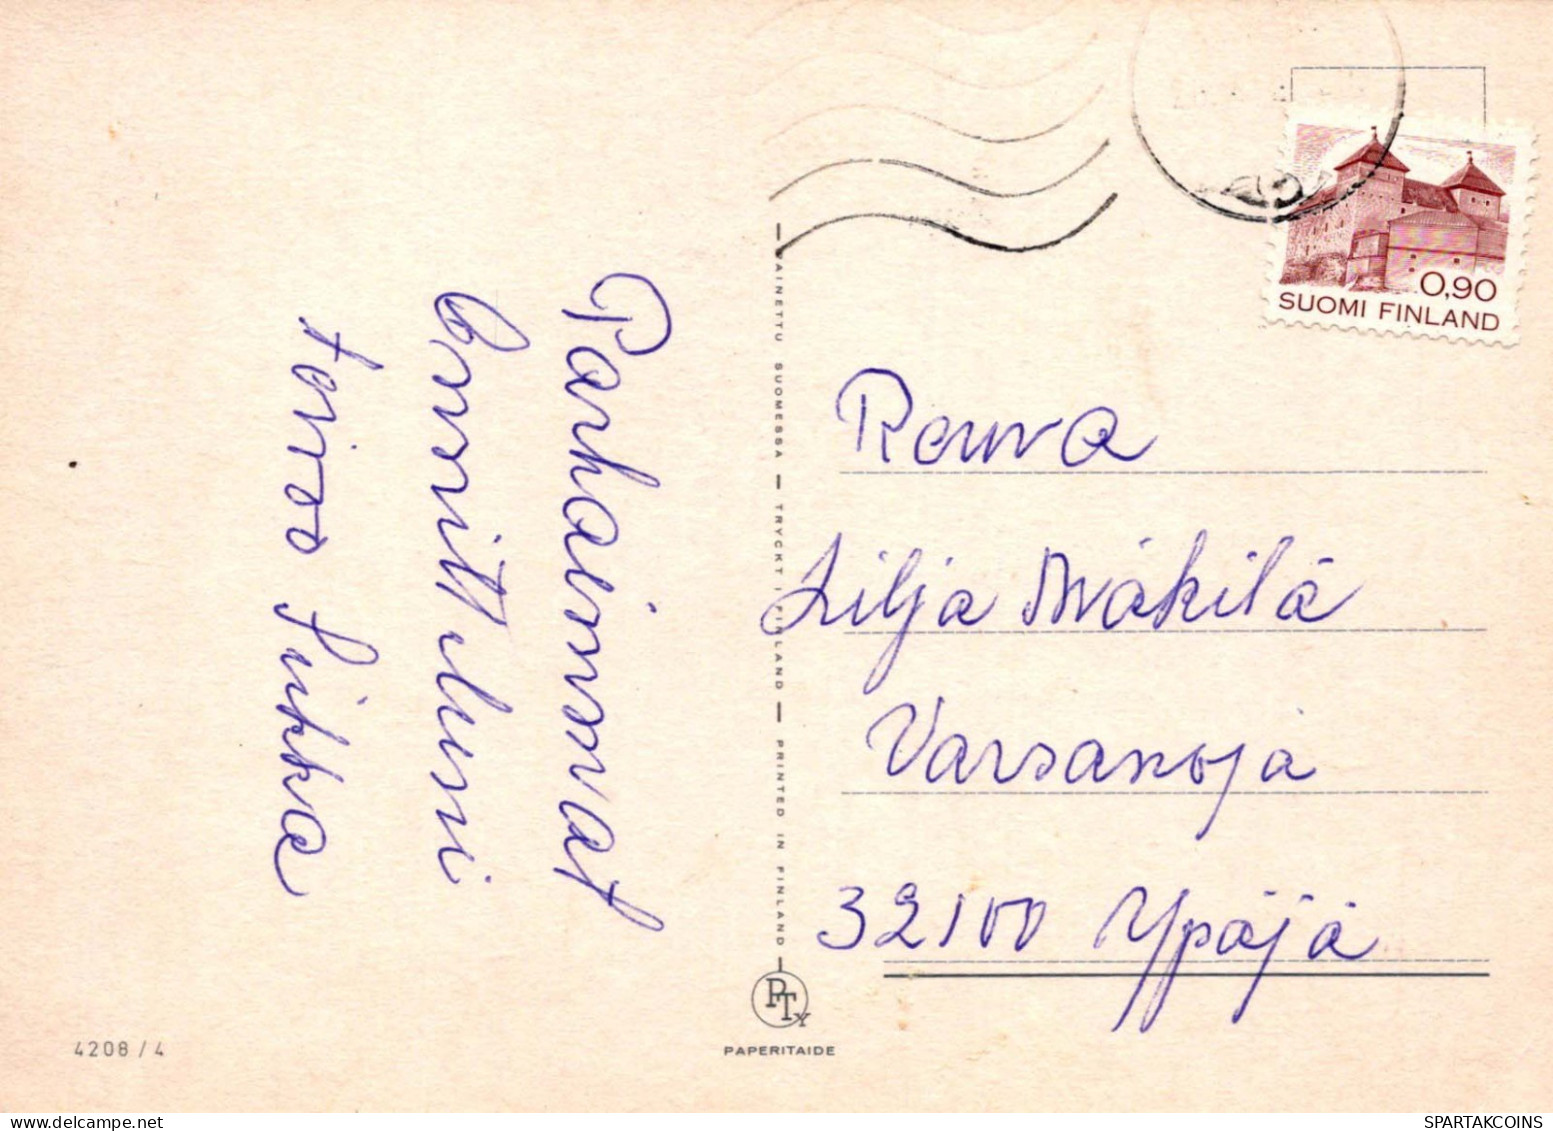 Parhaimmat
Onnitteluni
toivoo Sirkka
0,90
SUOMI FINLAND
Rouva
Lilja Mäkilä
Varsanoja
32100 Ypäjä
PAINETTU SUOMESSA — TRYCKT I FINLAND — PRINTED IN FINLAND
PTY
PAPERITAIDE
4208 / 4
SPARTAKCOINS